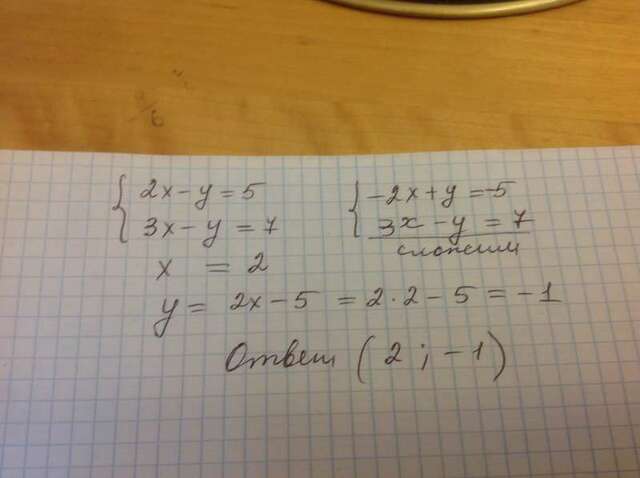 2x-y=5
3x-y=7
x = 2
-2x+y=-5
3x-y=7
сложим
y= 2x-5 =2·2-5=-1
Ответ (2;-1)